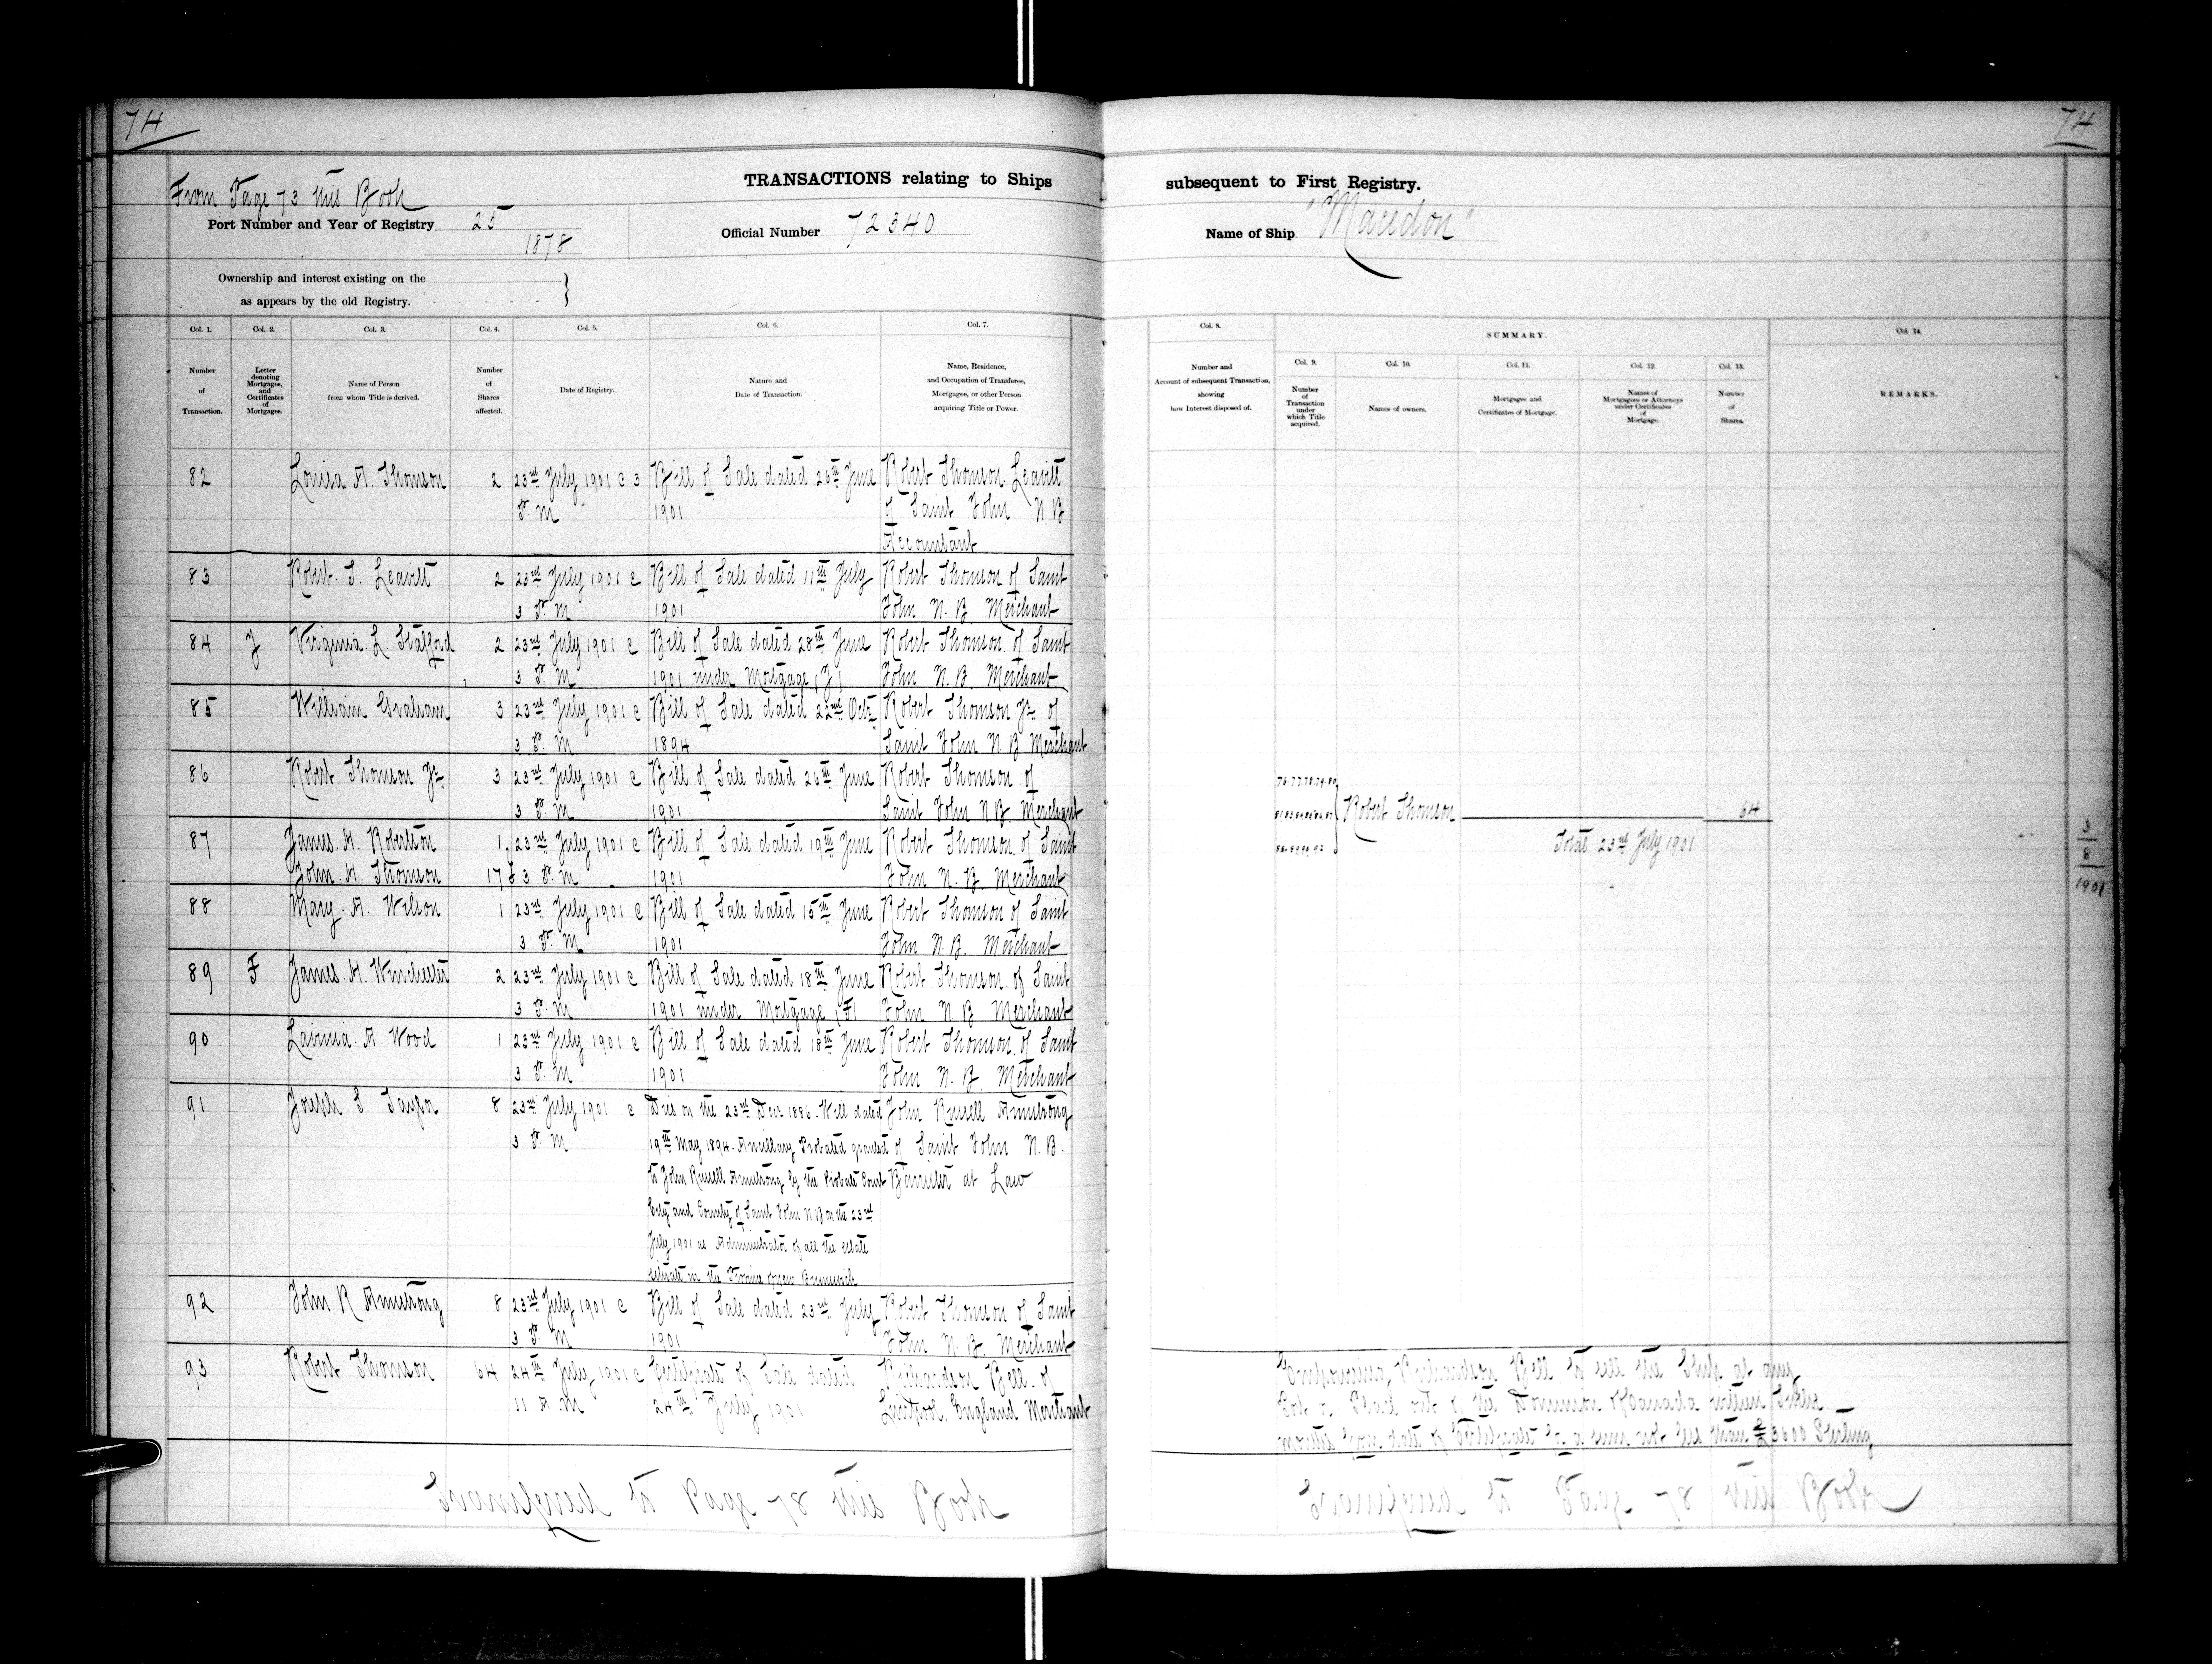 74
74
From Page 73 this Book
TRANSACTIONS relating to Ships subsequent to First Registry.
Port Number and Year of Registry 25
1878
Official Number 72340
Name of Ship "Macedon"
Ownership and interest existing on the
as appears by the old Registry.
Col. 1. Number of Transaction.
Col. 2. Letter denoting Mortgages, and Certificates of Mortgages.
Col. 3. Name of Person from whom Title is derived.
Col. 4. Number of Shares affected.
Col. 5. Date of Registry.
Col. 6. Nature and Date of Transaction.
Col. 7. Name, Residence, and Occupation of Transferee, Mortgagee, or other Person acquiring Title or Power.
Col. 8. Number and Account of subsequent Transaction, showing how Interest disposed of.
SUMMARY.
Col. 9. Number of Transaction under which Title acquired.
Col. 10. Names of owners.
Col. 11. Mortgages and Certificates of Mortgage.
Col. 12. Names of Mortgagees or Attorneys under Certificates of Mortgage.
Col. 13. Number of Shares.
Col. 14. REMARKS.
82 Louisa A. Thomson 2 23rd July 1901 @ 3 Bill of Sale dated 26th June Robert Thomson Leavitt
P. M 1901 of Saint John N. B
Accountant
83 Robert. T. Leavitt 2 23rd July 1901 @ Bill of Sale dated 11th July Robert Thomson of Saint
3 P. M 1901 John N. B. Merchant
84 J Virginia. L. Stafford 2 23rd July 1901 @ Bill of Sale dated 28th June Robert Thomson of Saint
3 P. M 1901 under Mortgage (J) John N. B. Merchant
85 William Graham 3 23rd July 1901 @ Bill of Sale dated 22nd Oct. Robert Thomson Jr. of
3 P. M 1894 Saint John N. B Merchant
86 Robert Thomson Jr. 3 23rd July 1901 @ Bill of Sale dated 26th June Robert Thomson of
3 P. M 1901 Saint John N B. Merchant
87 James. H. Robertson 1 23rd July 1901 @ Bill of Sale dated 19th June Robert Thomson of Saint
John. H. Thomson 17 3 P. M 1901 John N. B. Merchant
88 Mary. A. Wilson 1 23rd July 1901 @ Bill of Sale dated 15th June Robert Thomson of Saint
3 P. M 1901 John N. B. Merchant
89 F James. H. Winchester 2 23rd July 1901 @ Bill of Sale dated 18th June Robert Thomson of Saint
3 P. M 1901 under Mortgage (F) John N. B Merchant
90 Lavinia. A. Wood 1 23rd July 1901 @ Bill of Sale dated 18th June Robert Thomson of Saint
3 P. M 1901 John N. B. Merchant
91 Joseph S Taylor 8 23rd July 1901 @ Died on the 23rd Decr 1886. Will dated John Russell Armstrong
3 P. M 19th May 1894. Ancillary Probated granted of Saint John N. B.
to John Russell Armstrong by the Probate Court Barrister at Law
City and County of Saint John N B on the 23rd
July 1901 as Administrator of all the Estate
situate in the Province of New Brunswick
92 John R Armstrong 8 23rd July 1901 @ Bill of Sale dated 23rd July Robert Thomson of Saint
3 P. M 1901 John N. B. Merchant
93 Robert Thomson 64 24th July 1901 @ Certificate of Sale dated Richardson Bell. of
11 A M 24th July 1901 Liverpool. England Merchant
Robert Thomson 64
Total 23rd July 1901
3
8
1901
Empowering Richardson Bell to sell the Ship at any
Port or Place out of the Dominion of Canada within Twelve
months from date of Certificate for a sum not less than £3600 Sterling
Transferred to Page 78 this Book
Transferred to Page 78 this Book